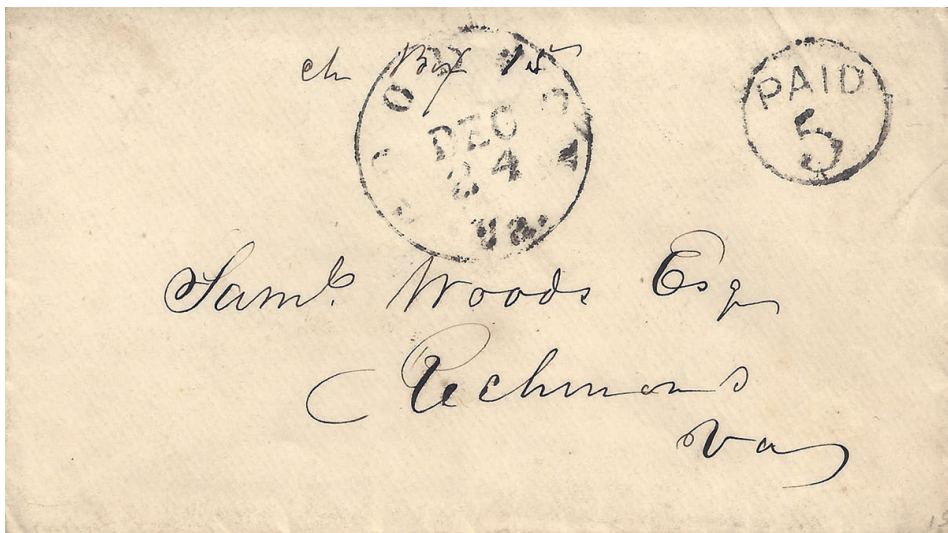 ch Box 15
DEC
24
Va.
PAID
5
Saml. Woods Esq
Richmond
Va